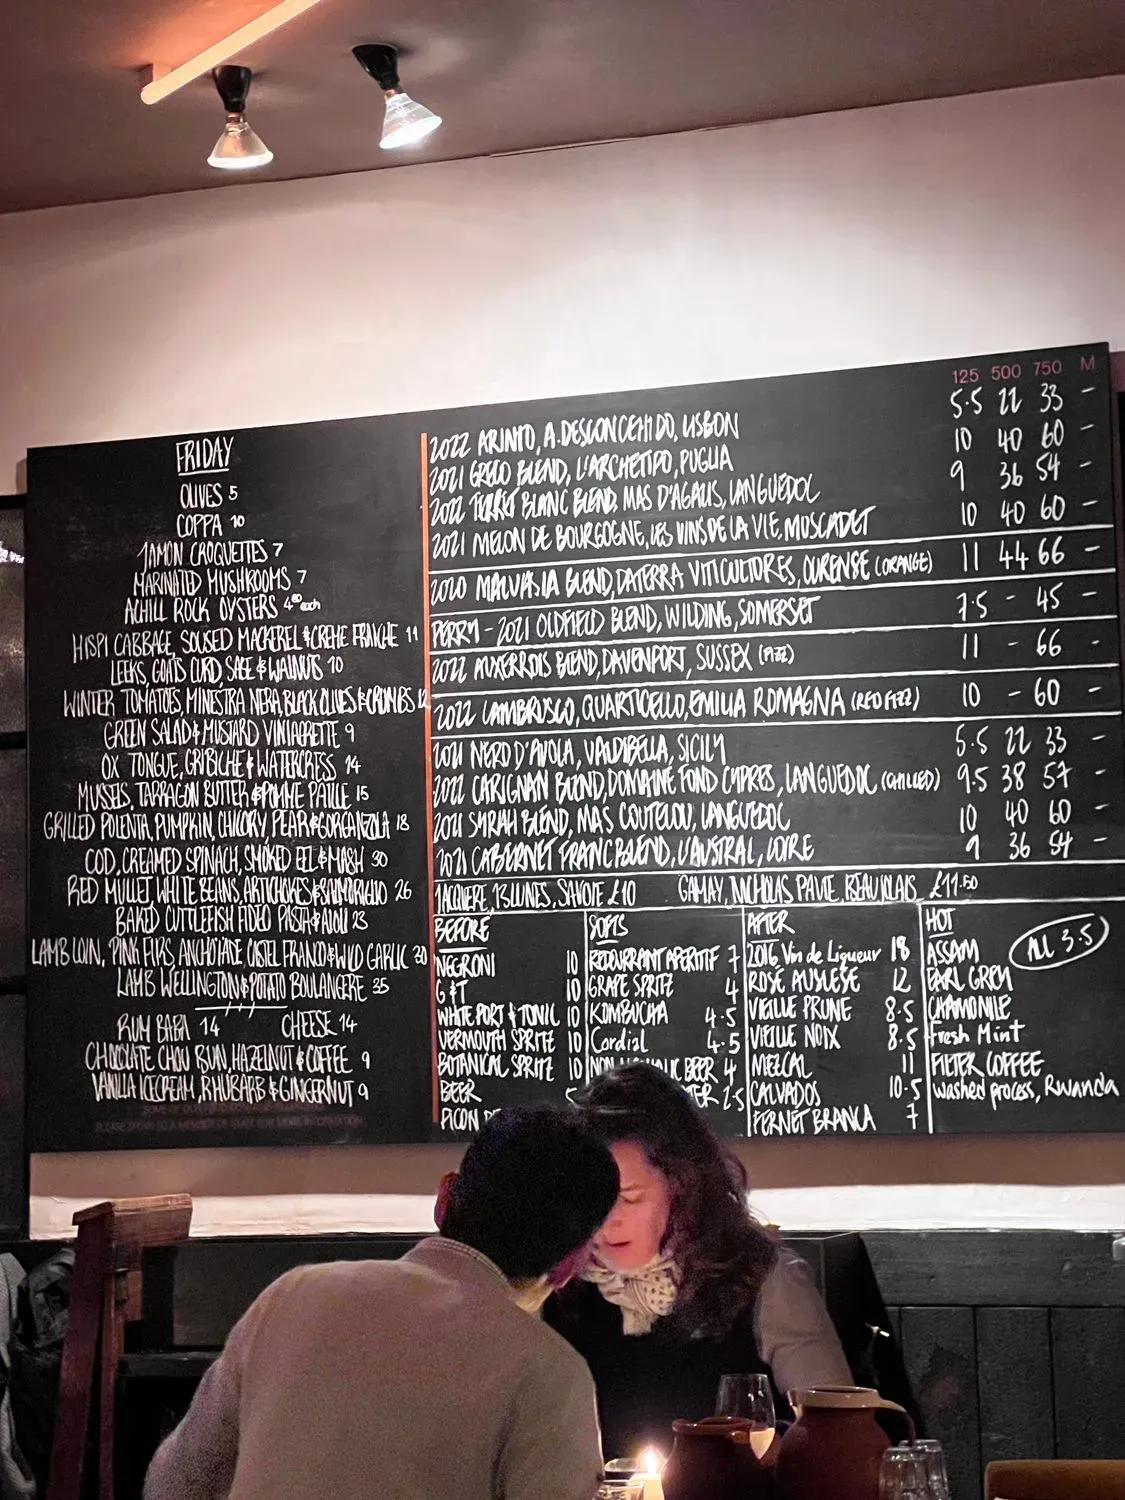 FRIDAY
OLIVES 5
COPPA 10
JAMON CROQUETTES 7
MARINATED MUSHROOMS 7
ACHILL ROCK OYSTERS 4.80 each
HISPI CABBAGE, SOUSED MACKEREL & CREME FRAICHE 11
LEEKS, GOATS CURD, SAGE & WALNUTS 10
WINTER TOMATOES, MINESTRA NERA, BLACK OLIVES & CRUMBS 12
GREEN SALAD & MUSTARD VINIAGRETTE 9
OX TONGUE, GRIBICHE & WATERCRESS 14
MUSSELS, TARRAGON BUTTER & POMME PAILLE 15
GRILLED POLENTA, PUMPKIN, CHICORY, PEAR & GORGANZOLA 18
COD, CREAMED SPINACH, SMOKED EEL & MASH 30
RED MULLET, WHITE BEANS, ARTICHOKES & SALMORIGLIO 26
BAKED CUTTLEFISH FIDEO PASTA & AIOLI 23
LAMB LOIN, PINK FIRS, ANCHOIADE, CASTEL FRANCO & WILD GARLIC 30
LAMB WELLINGTON & POTATO BOULANGERE 35
RUM BABA 14 CHEESE 14
CHOCOLATE CHOU BUN, HAZELNUT & COFFEE 9
VANILLA ICECREAM, RHUBARB & GINGERNUT 9
125 500 750 M
2022 ARINTO, A.DESCONCEHIDO, LISBON 5.5 22 33 -
2021 GRECO BLEND, L'ARCHETIPO, PUGLIA 10 40 60 -
2022 TERRET BLANC BLEND, MAS D'AGALIS, LANGUEDOC 9 36 54 -
2021 MELON DE BOURGOGNE, LES VINS DE LA VIE, MUSCADET 10 40 60 -
2020 MALVASIA BLEND, DATERRA VITICULTORES, OURENSE (ORANGE) 11 44 66 -
PERRY - 2021 OLDFIELD BLEND, WILDING, SOMERSET 7.5 - 45 -
2022 AUXERROIS BLEND, DAVENPORT, SUSSEX (FIZZ) 11 - 66 -
2022 LAMBRUSCO, QUARTICELLO, EMILIA ROMAGNA (RED FIZZ) 10 - 60 -
2021 NERO D'AVOLA, VALDIBELLA, SICILY 5.5 22 33 -
2022 CARIGNAN BLEND, DOMAINE FOND CYPRES, LANGUEDOC (CHILLED) 9.5 38 57 -
2021 SYRAH BLEND, MAS COUTELOU, LANGUEDOC 10 40 60 -
2021 CABERNET FRANC BLEND, L'AUSTRAL, LOIRE 9 36 54 -
JACQUERE, 13 LUNES, SAVOIE £10 GAMAY, NICHOLAS PAVIE, BEAUJOLAIS, £11.50
BEFORE
NEGRONI 10
G & T 10
WHITE PORT & TONIC 10
VERMOUTH SPRITZ 10
BOTANICAL SPRITZ 10
BEER 5
PICON
SOFTS
REDCURRANT APERITIF 7
GRAPE SPRITZ 4
KOMBUCHA 4.5
Cordial 4.5
BEER 4
2.5
AFTER
2016 Vin de Liqueur 18
ROSE AUSLESE 12
VIEILLE PRUNE 8.5
VIEILLE NOIX 8.5
MEZCAL 11
CALVADOS 10.5
FERNET BRANCA 7
HOT
ALL 3.5
ASSAM
EARL GREY
CHAMOMILE
Fresh Mint
FILTER COFFEE
Washed process, Rwanda